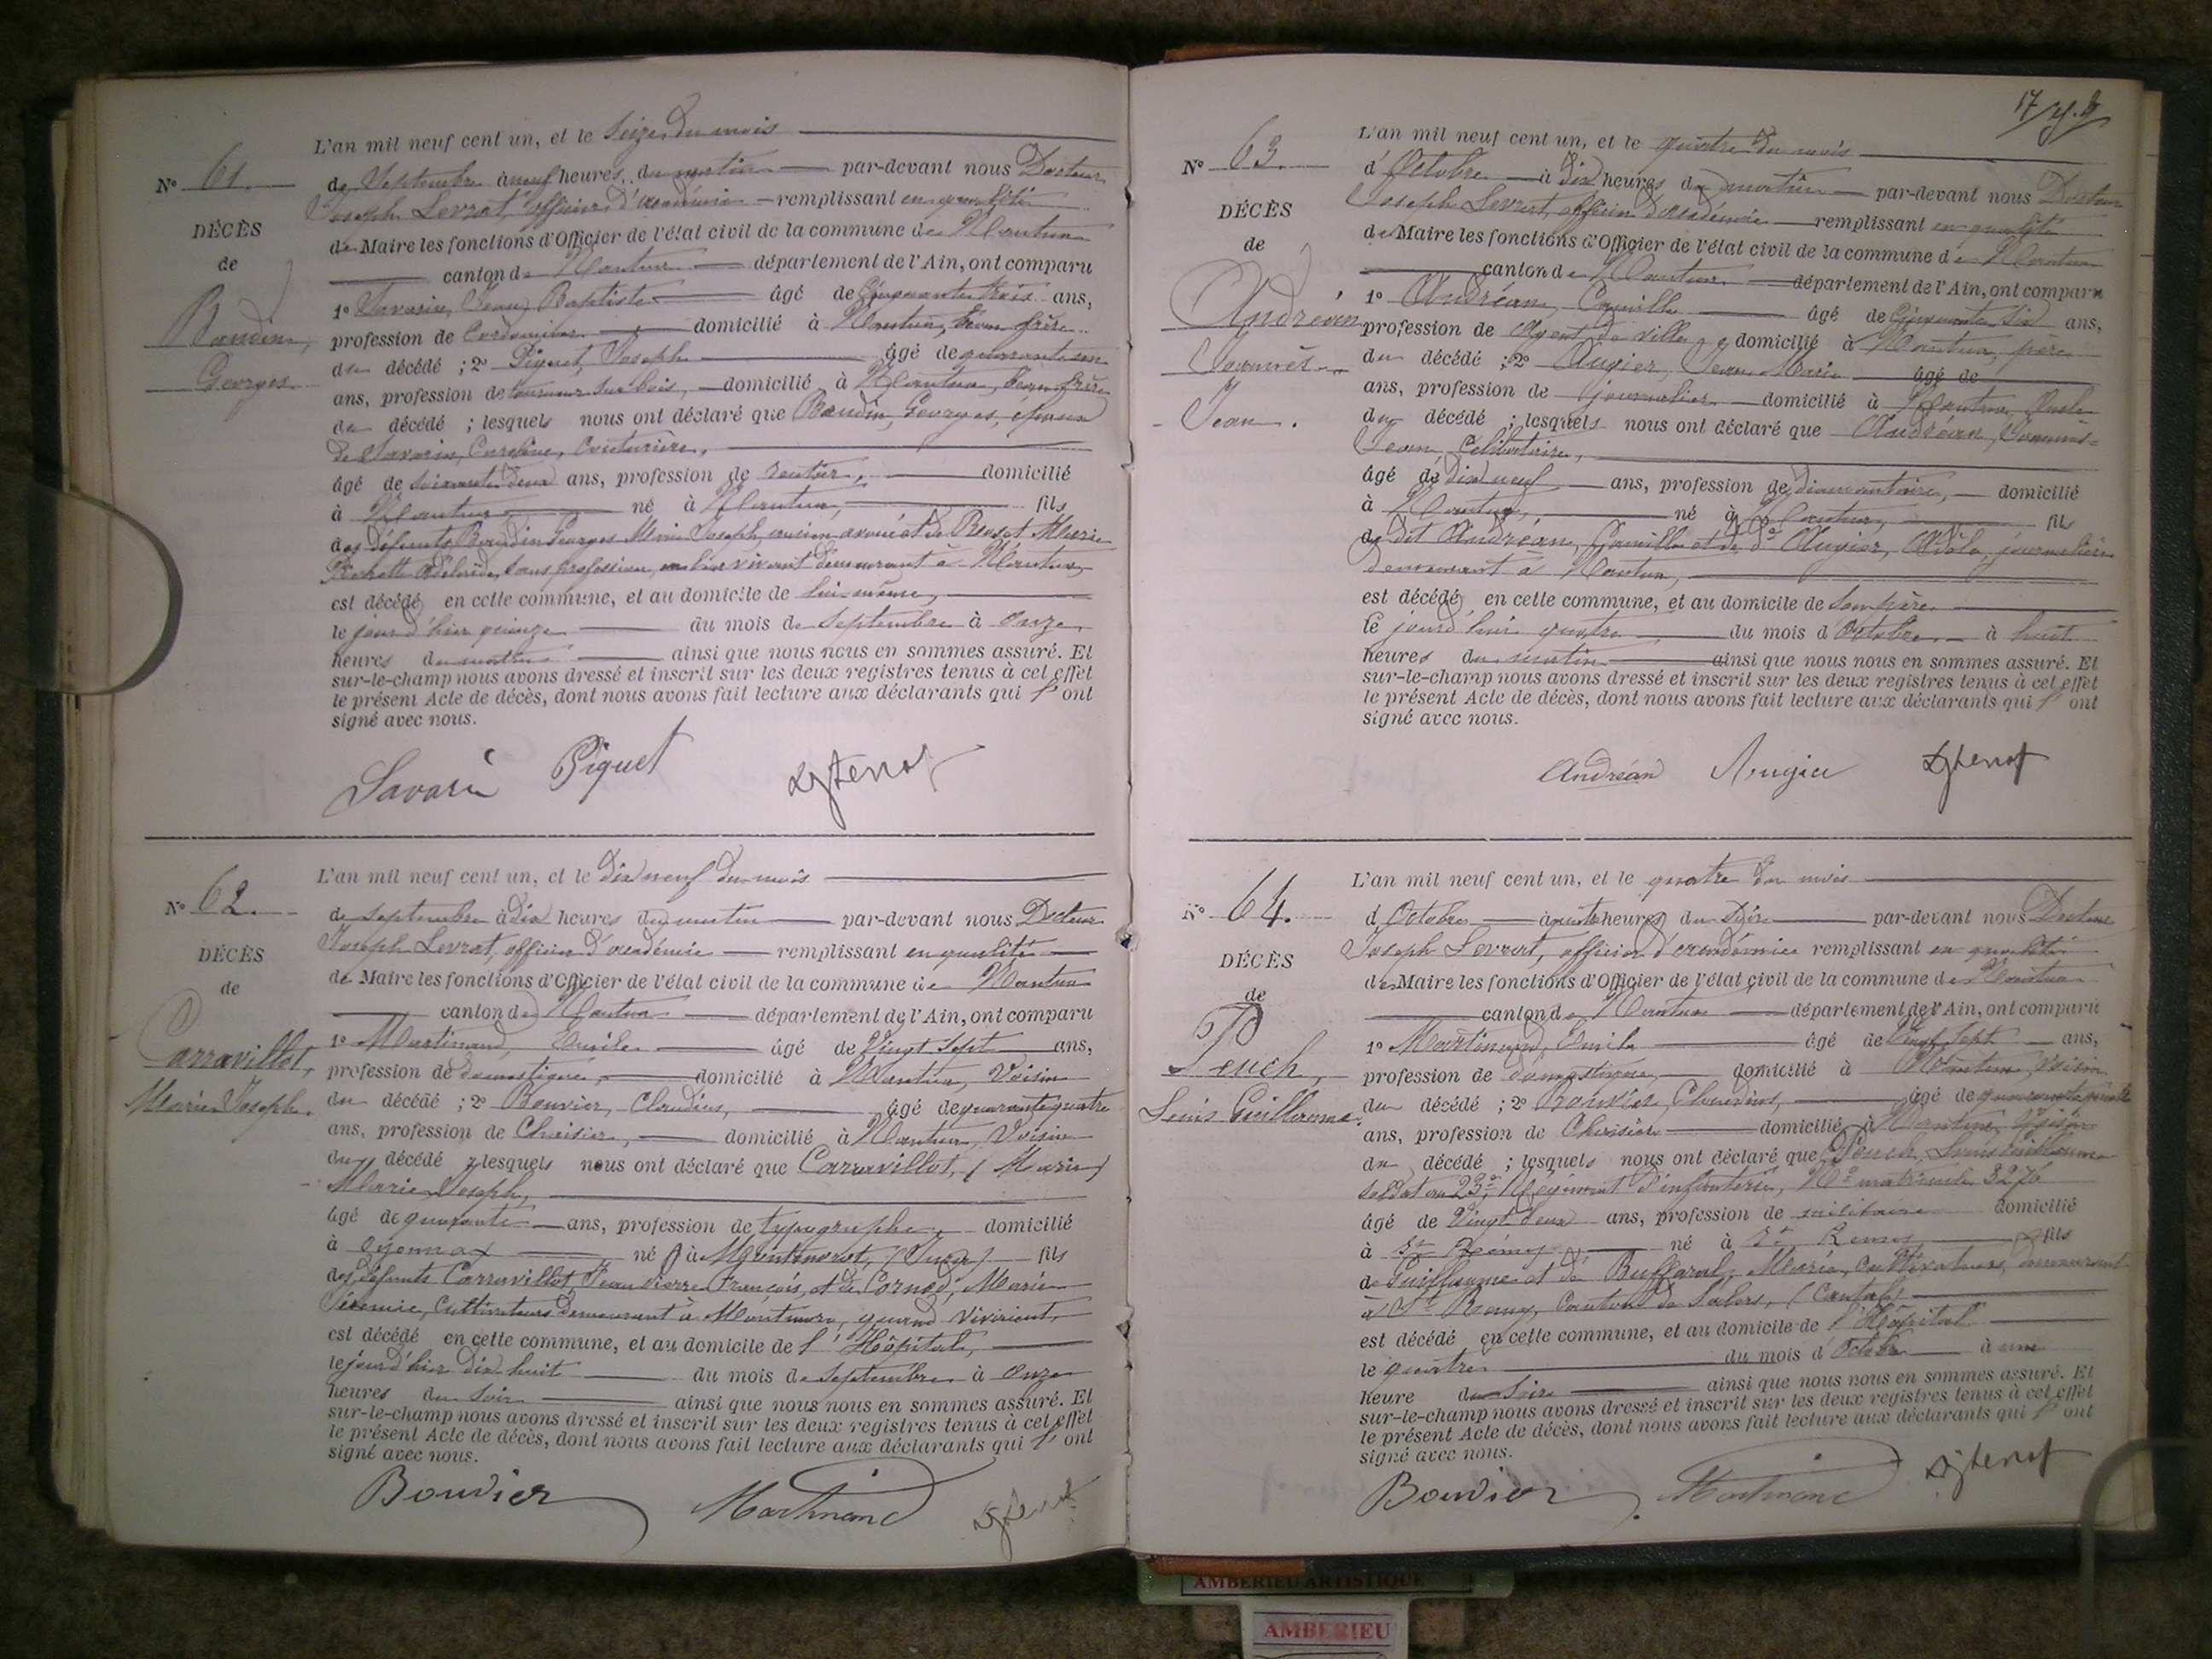 L'an mil neuf cent un, et le Seize du mois
N° 61.
de Septembre à neuf heures du matin par-devant nous Docteur
Joseph Levrat, officier d'académie remplissant en qualité
DÉCÈS
de Maire les fonctions d'Officier de l'état civil de la commune de Nantua
de
canton de Nantua département de l'Ain, ont comparu
Baudin,
1° Savarin, Jean Baptiste âgé de Cinquante trois ans,
profession de Cordonnier domicilié à Nantua, beau frère
Georges
du décédé ; 2° Piquet, Joseph âgé de quarante un
ans, profession de tourneur sur bois, domicilié à Nantua, beau frère
du décédé ; lesquels nous ont déclaré que Baudin, Georges, époux
de Savarin, Caroline, Couturière,
âgé de soixante deux ans, profession de rentier, domicilié
à Nantua né à Nantua, fils
des défunts Baudin Georges Marie Joseph, ancien avoué et de Marie
Adélaïde, sans profession, en leur vivant demeurant à Nantua
est décédé en cette commune, et au domicile de lui-même,
le jour d'hier quinze du mois de Septembre à Onze
heures du matin ainsi que nous nous en sommes assuré. Et
sur-le-champ nous avons dressé et inscrit sur les deux registres tenus à cet effet
le présent Acte de décès, dont nous avons fait lecture aux déclarants qui l'ont
signé avec nous.
Savarin Piquet
L'an mil neuf cent un, et le dix neuf du mois
N° 62.
de septembre à dix heures du matin par-devant nous Docteur
Joseph Levrat, officier d'académie remplissant en qualité
DÉCÈS
de Maire les fonctions d'Officier de l'état civil de la commune de Nantua
de
canton de Nantua département de l'Ain, ont comparu
Carravillot,
1° Martinand, Emile âgé de Vingt sept ans,
profession de domestique, domicilié à Nantua, Voisin
Marie Joseph.
du décédé ; 2° Bouvier, Claudius, âgé de quarante quatre
ans, profession de Chaisier, domicilié à Nantua, Voisin
du décédé ; lesquels nous ont déclaré que Carravillot, (Marie)
Marie Joseph,
âgé de quarante ans, profession de typographe, domicilié
à Oyonnax né à (Jura) fils
des défunts Carravillot, Jean Pierre François, et de Marie
Cultivateurs demeurant à quand vivaient,
est décédé en cette commune, et au domicile de l'Hôpital,
le jour d'hier dix huit du mois de Septembre à Onze
heures du soir ainsi que nous nous en sommes assuré. Et
sur-le-champ nous avons dressé et inscrit sur les deux registres tenus à cet effet
le présent Acte de décès, dont nous avons fait lecture aux déclarants qui l'ont
signé avec nous.
Bouvier Martinand
17
L'an mil neuf cent un, et le quatre du mois
N° 63.
d'Octobre à dix heures du matin par-devant nous Docteur
Joseph Levrat, officier d'académie remplissant en qualité
DÉCÈS
de Maire les fonctions d'Officier de l'état civil de la commune de Nantua
de
canton de Nantua département de l'Ain, ont comparu
Andréan,
1° Andréan, Camille âgé de Cinquante six ans,
profession de Agent de ville, domicilié à Nantua, père
Joannès
du décédé ; 2° Augier, Jean Marie âgé de
ans, profession de journalier domicilié à Nantua, Oncle
Jean.
du décédé ; lesquels nous ont déclaré que Andréan, Joannès-
Jean, Célibataire,
âgé de dix neuf ans, profession de diamantaire, domicilié
à Nantua, né à Nantua, fils
de dit Andréan, Camille et de Augier, Adèle, journalière
demeurant à Nantua,
est décédé en cette commune, et au domicile de son père
le jourd'hui quatre du mois d'Octobre à huit
heures du matin ainsi que nous nous en sommes assuré. Et
sur-le-champ nous avons dressé et inscrit sur les deux registres tenus à cet effet
le présent Acte de décès, dont nous avons fait lecture aux déclarants qui l'ont
signé avec nous.
Andréan Augier
L'an mil neuf cent un, et le quatre du mois
N° 64.
d'Octobre à quatre heures du Soir par-devant nous Docteur
Joseph Levrat, officier d'académie remplissant en qualité
DÉCÈS
de Maire les fonctions d'Officier de l'état civil de la commune de Nantua
de
canton de Nantua département de l'Ain, ont comparu
1° Martinand, Emile âgé de Vingt Sept ans,
Peuch,
profession de domestique, domicilié à Nantua, Voisin
Louis Guillaume.
du décédé ; 2° Bouvier, Claudius, âgé de quarante quatre
ans, profession de Chaisier domicilié à Nantua, Voisin
du décédé ; lesquels nous ont déclaré que Peuch, Louis Guillaume
soldat au 23e Régiment d'infanterie, N° matricule 3276
âgé de Vingt deux ans, profession de militaire domicilié
à St Rémy né à St Remy fils
de Guillaume et de Marie, Cultivateurs, demeurant
à St Remy, Canton de Salers, (Cantal)
est décédé en cette commune, et au domicile de l'Hôpital
le quatre du mois d'Octobre à une
heure du Soir ainsi que nous nous en sommes assuré. Et
sur-le-champ nous avons dressé et inscrit sur les deux registres tenus à cet effet
le présent Acte de décès, dont nous avons fait lecture aux déclarants qui l'ont
signé avec nous.
Bouvier Martinand
AMBERIEU ARTISTIQUE
AMBERIEU